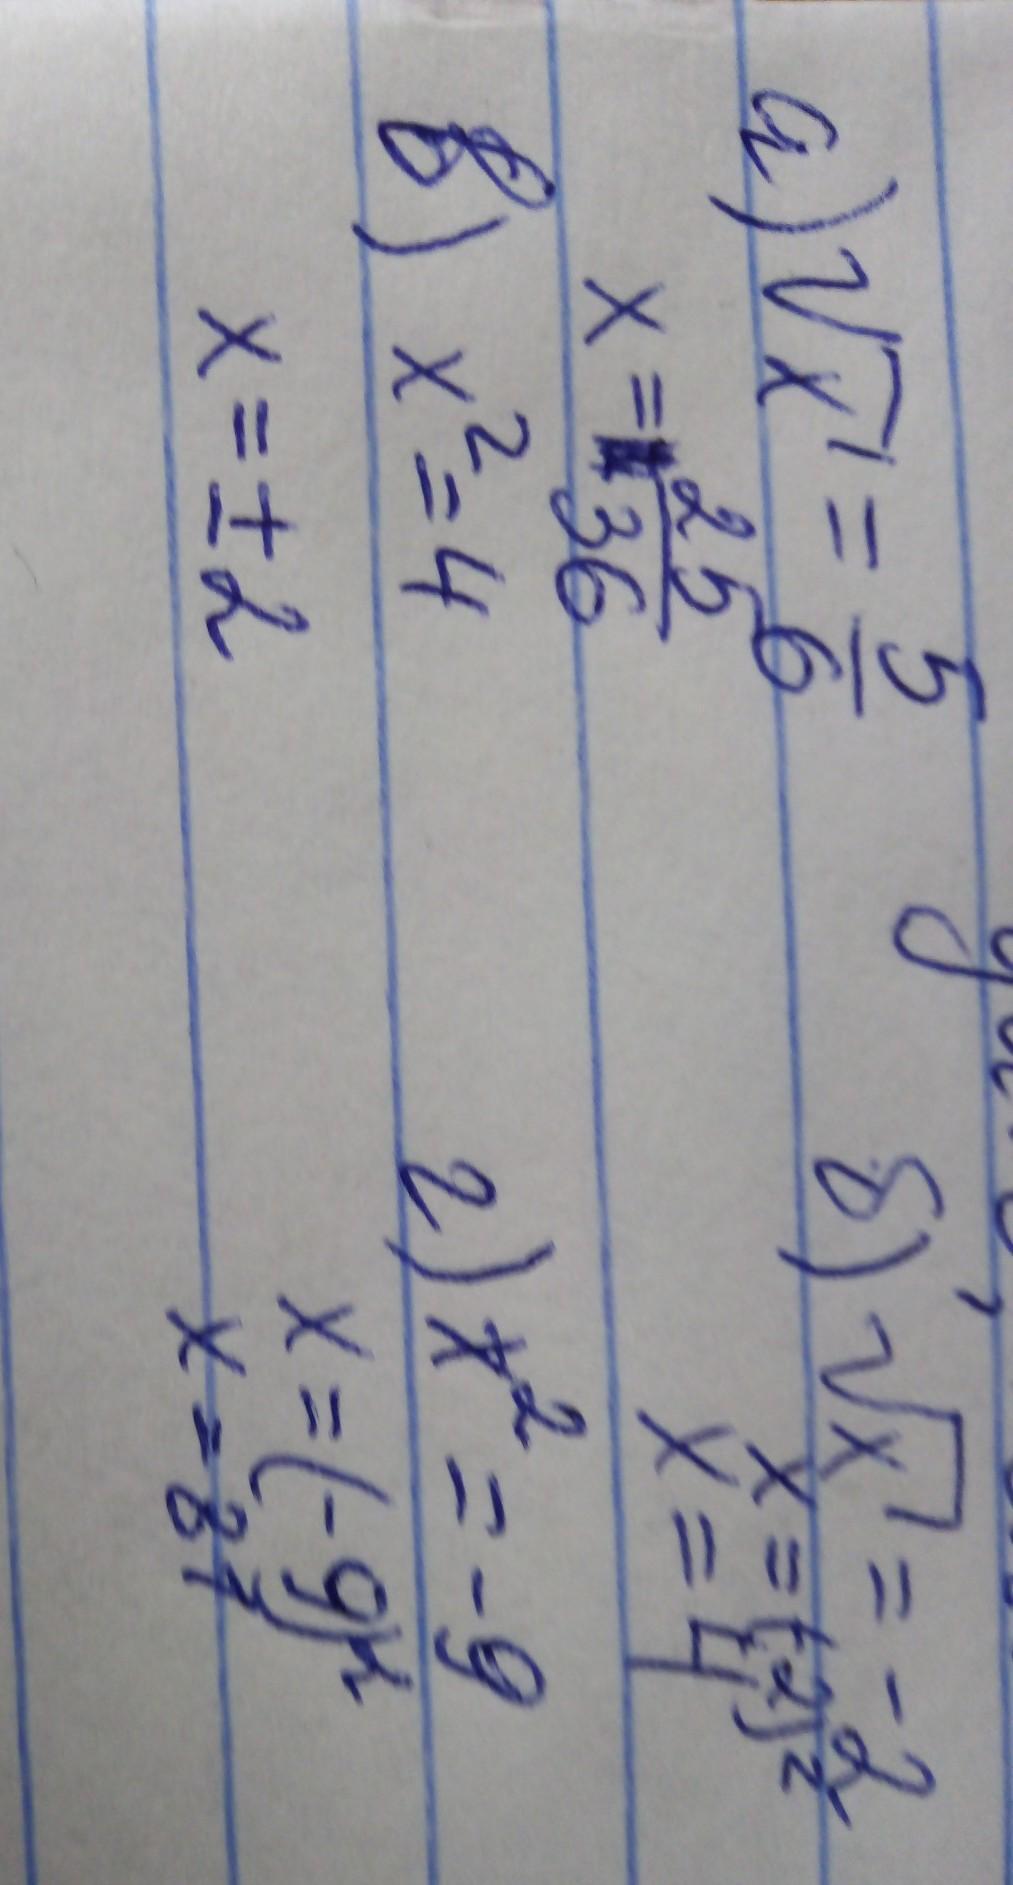 а) √x = 5/6
x = 25/36
б) √x = -2
x = (-2)²
x = 4
в) x² = 4
x = ± 2
г) x² = -9
x = (-9)²
x = 81